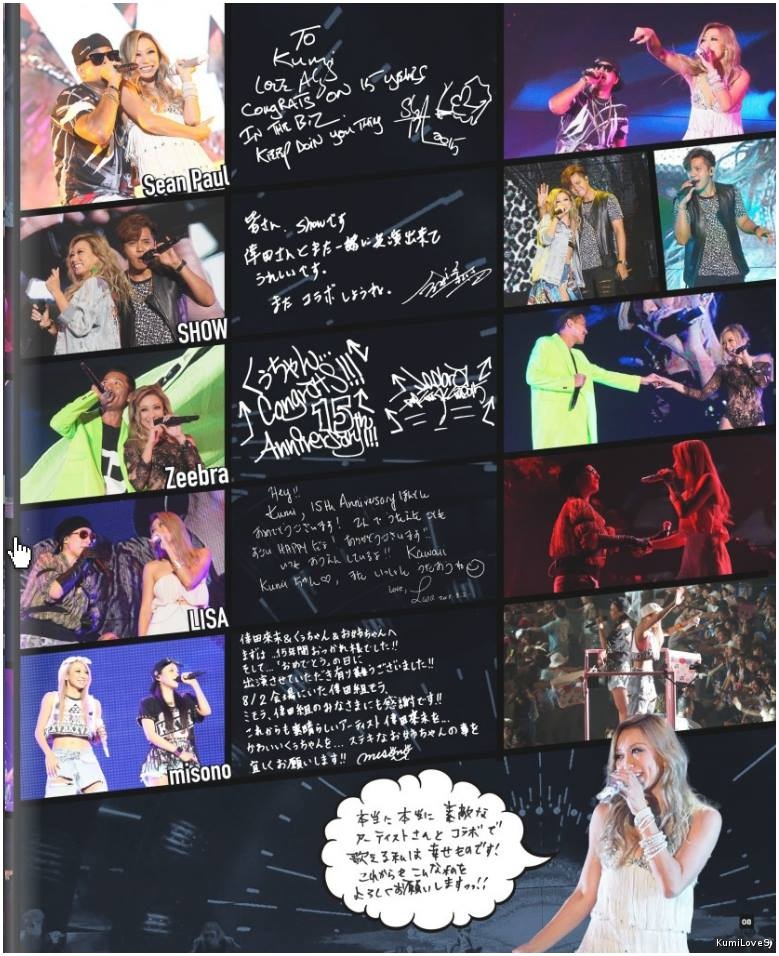 Sean Paul
To
Kumi
Love Always
CONGRATS ON 15 years
IN THE BiZ
KEEP DOIN YOU THNG
2015
SHOW
皆さん、Showです
倖田さんとまた一緒に共演出来て
うれしいです。
また コラボ しようね。
Zeebra
くぅちゃん...
CongratS!!!
15th
Anniversary!!!
LISA
Hey!!
Kumi, 15th Anniversary ほんとに
おめでとうございます!
HAPPY だよ! ありがとうございます!!
いつも おうえん しているよ!! Kawaii
Kumi ちゃん♡, また いっしょに うたおうね
Love,
misono
倖田來未&くぅちゃん&お姉ちゃんへ
まずは..15年間おつかれ様でした!!
そして…"おめでとう。の日に
出演させていただき有り難うございました!!
8/2 会場にいた倖田組でう
ミモラ、倖田組のみなさまにも感謝です!!
これからも素晴らしいアーティスト倖田來未を…
かわいいくぅちゃんを… ステキなお姉ちゃんの事を
宜しくお願いします!! misono
本当に本当に 素敵な
アーティストさんと コラボで
歌える私は 幸せものです!
これからも こんな私を
よろしくお願いしますっっ!!
KumiLove9j